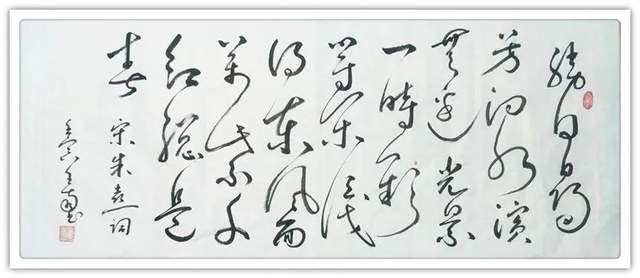 勝日尋
芳泗水濱
無邊光景
一時新
等閒識
得東風面
萬紫千
紅總是
春 宋朱熹詞
壬寅